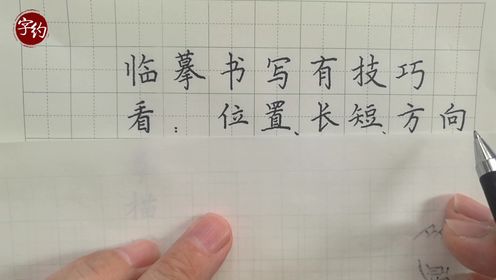 字约
临摹书写有技巧
看：位置、长短、方向